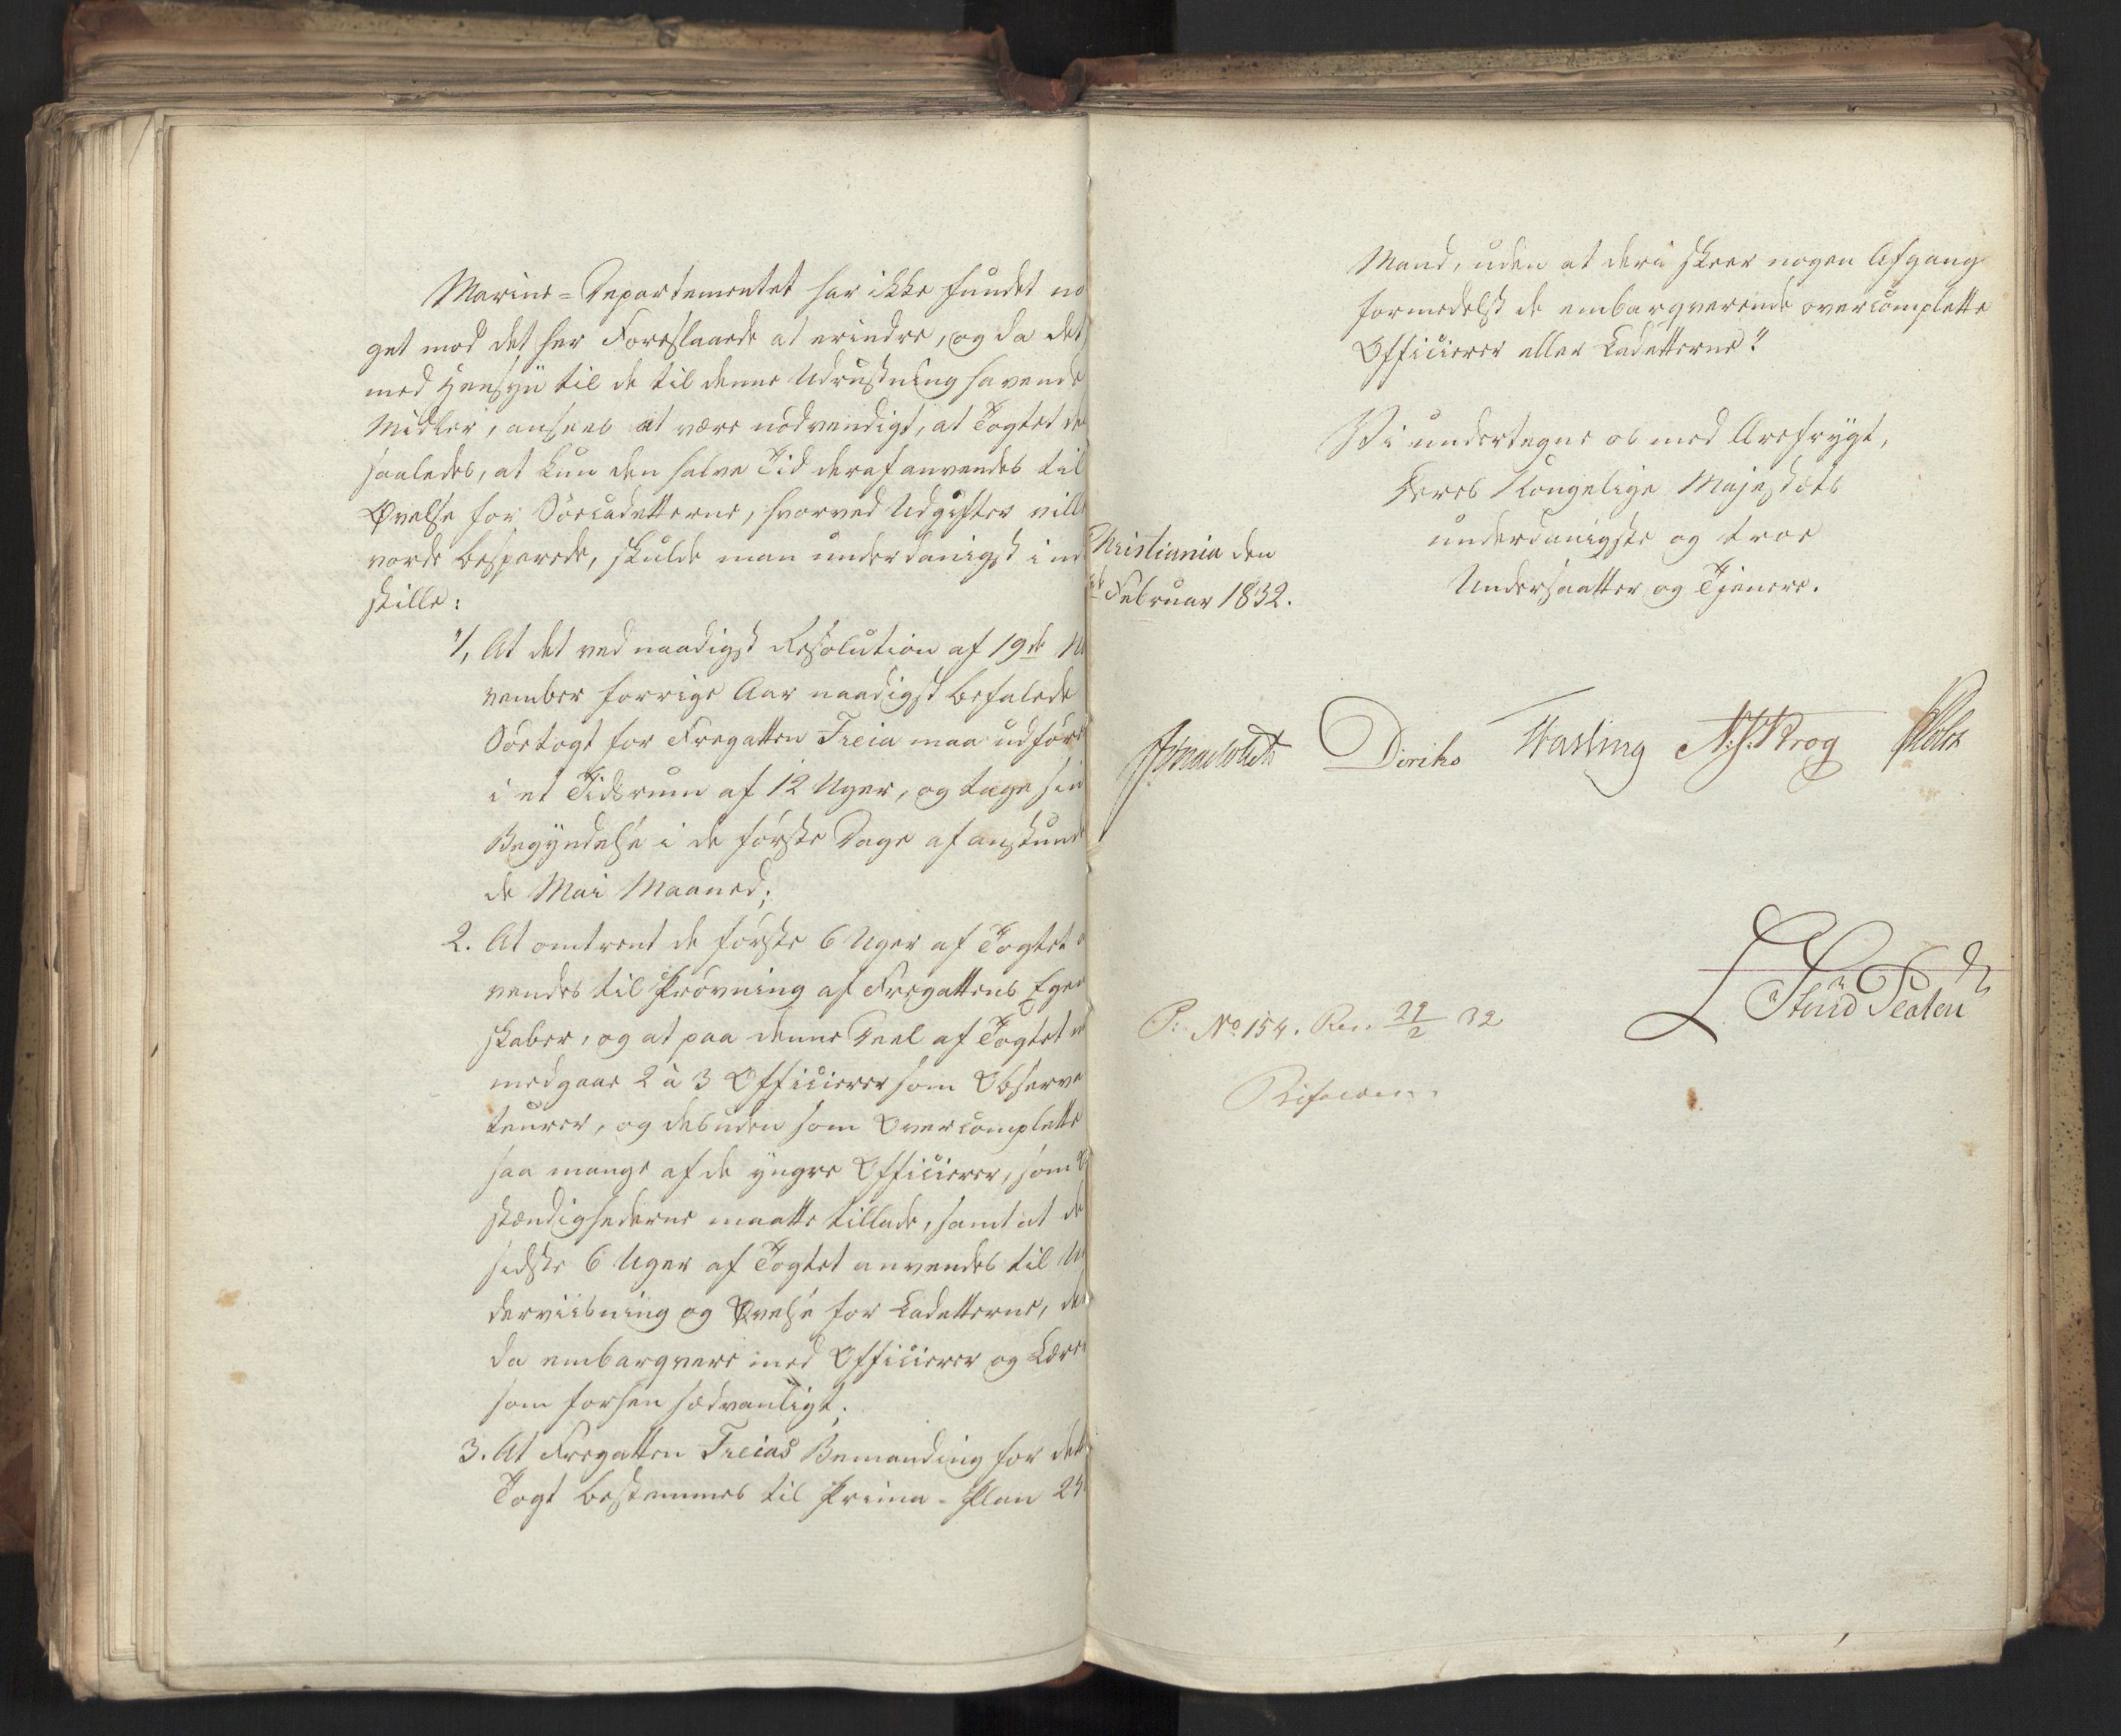 Marine-Departementet har ikke fundet no
get mod det her Foreslaaede at erindre, og da det
med Hensyn til de til denne Udrustning havende
Midler, ansees at være nødvendigt, at Togtet de
saaledes, at kun den halve Tid deraf anvendes til
Øvelse for Søecadetterne, hvorved Udgifter vill
vorde besparede, skulde man underdanigst ind
stille:
1, At det ved naadigst Resolution af 19de No
vember forrige Aar naadigst befalede
Søetogt for Fregatten Freia maa udføre
i et Tidsrum af 12 Uger, og tage sin
Begyndelse i de første Dage af anstund
de Mai Maaned;
2. At omtrent de første 6 Uger af Togtet a
vendes til Prøvning af Fregattens Egen
skaber, og at paa denne Deel af Togtet
medgaae 2 à 3 Officierer som Observa
teurer, og desuden som Overcomplette
saa mange af de yngre Officierer, som O
stændighederne maatte tillade, samt at de
sidste 6 Uger af Togtet anvendes til Un
derviisning og Øvelse for Cadetterne, de
da embarqvere med Officierer og Lærer
som forhen sædvanligt.
3. At Fregatten Freias Bemanding for dett
Togt bestemmes til Prima-Plan 25
Mand, uden at deri skeer nogen Afgang
formedelst de embarqverende overcomplette
Officierer eller Cadetterne"
Vi undertegne os med Ærefrygt,
Deres Kongelige Majestæts
underdanigste og troe
Undersaatter og Tjenere.
Christiania den
Februar 1832.
Diriks Fasting Krog Holst
P: No 154. Res. 29/2 32